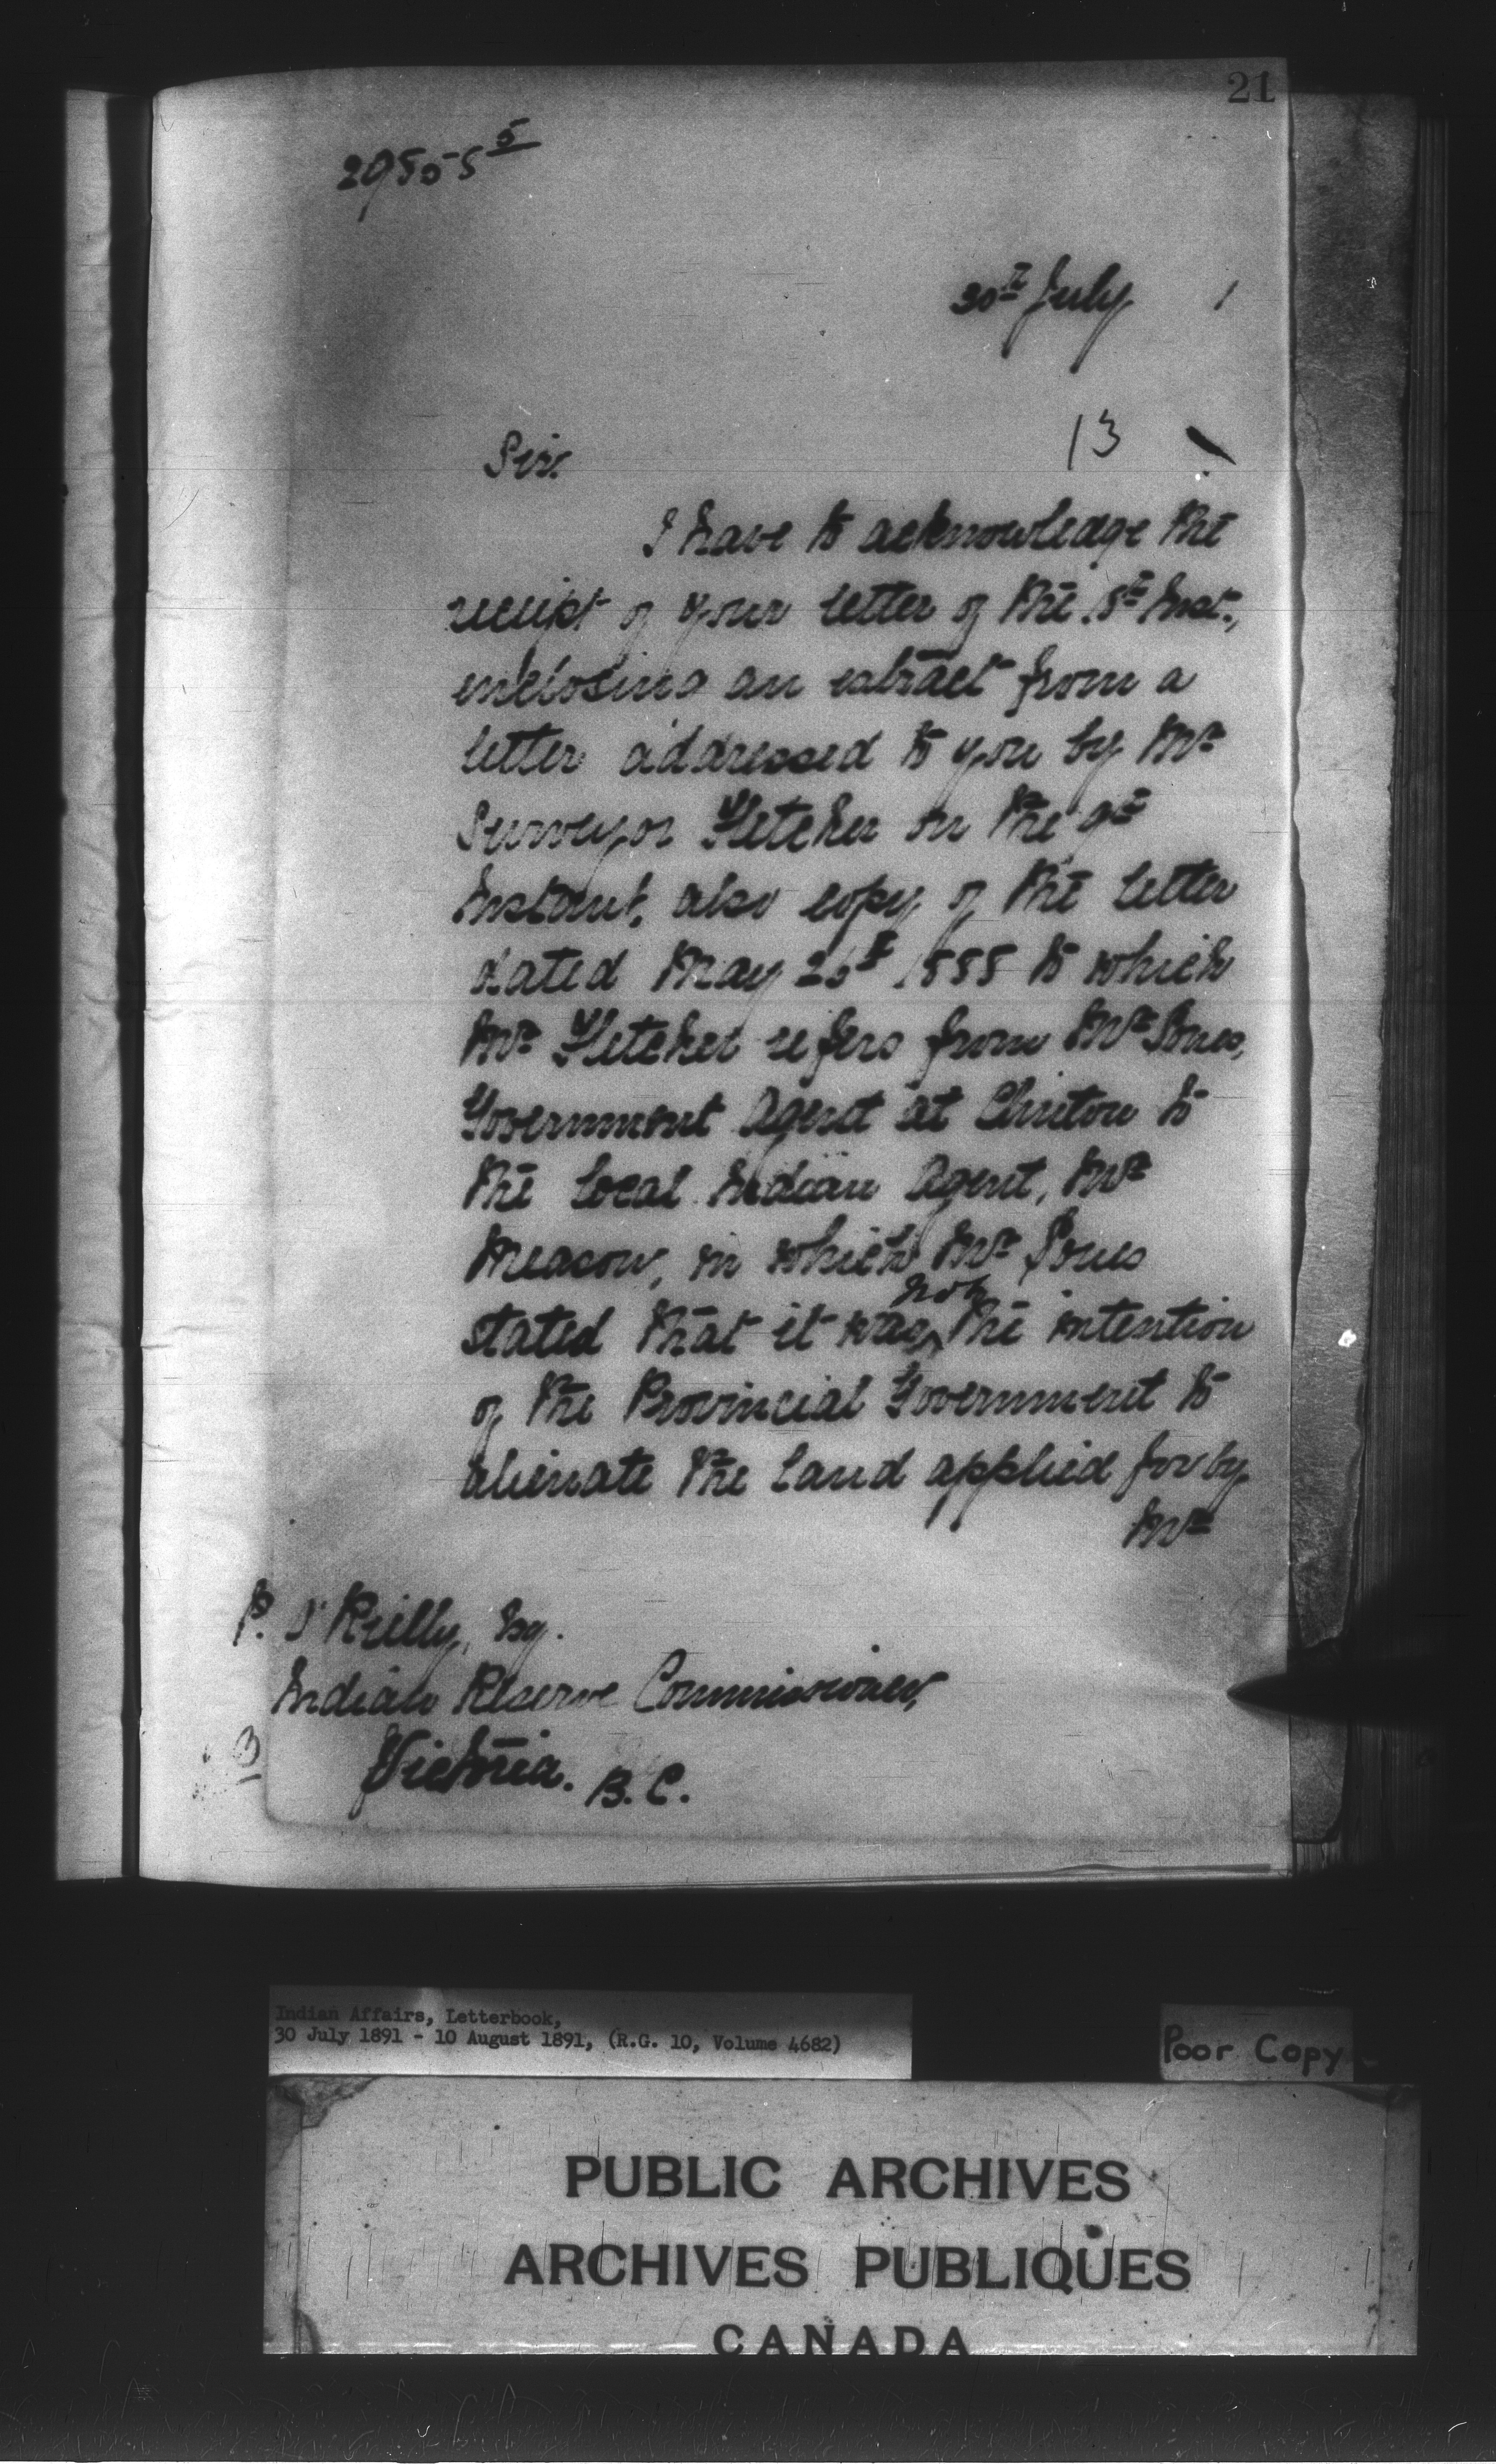 21
30th July 1
13
Sir.
I have to acknowledge the
receipt of your letter of the Inst.,
enclosing an extract from a
letter addressed to you by Mr
Surveyor Fletcher on the 9th
Instant, also copy of the letter
dated May 1888 to which
Mr Fletcher refers from Mr Soues,
Government Agent at Clinton to
the local Indian Agent, Mr
Meason, in which Mr Soues
stated that it was not the intention
of the Provincial Government to
alienate the land applied for by
Mr
P. O'Reilly, Esq.
Indian Reserve Commissioner,
Victoria. B.C.
3
Indian Affairs, Letterbook,
30 July 1891 - 10 August 1891, (R.G. 10, Volume 4682)
Poor Copy
PUBLIC ARCHIVES
ARCHIVES PUBLIQUES
CANADA